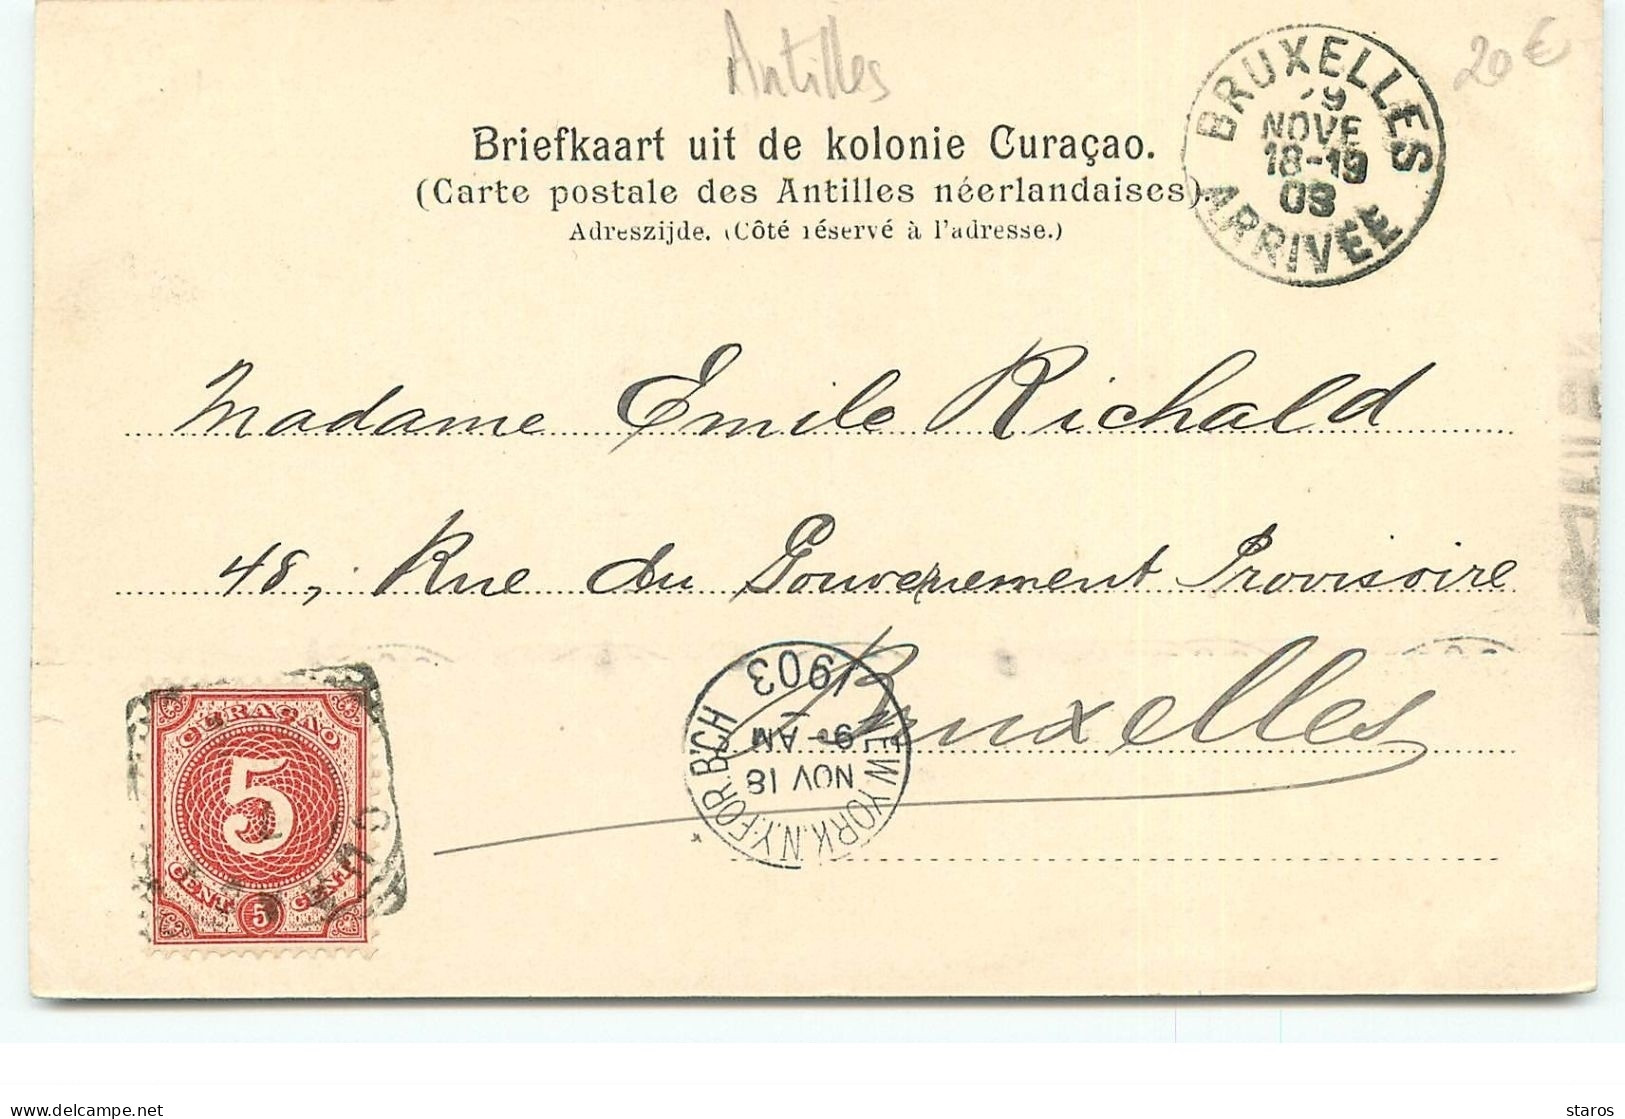 Antilles
20 €
BRUXELLES
NOVE
18-19
03
ARRIVÉE
Briefkaart uit de kolonie Curaçao.
(Carte postale des Antilles néerlandaises).
Adreszijde. (Côté réservé à l'adresse.)
Madame Emile Richald
48, Rue du Gouvernement Provisoire
Bruxelles
NEW YORK. N.Y. FOR. B'CH
NOV 18
9 - AM
1903
CURAÇAO
5
CENT 5 CENT
delcampe.net
staros